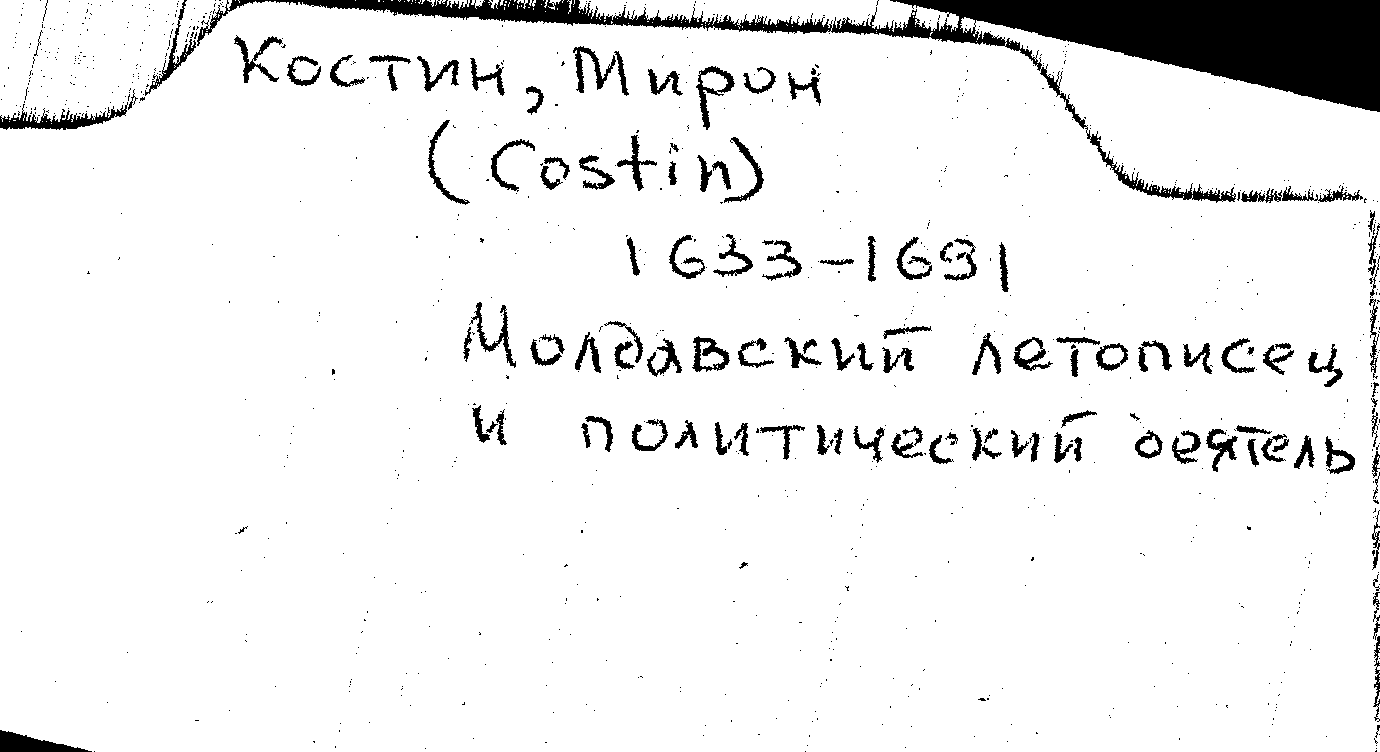 Костин, Мирон
(Costin)
1633-1691
Молдавский летописец
и политический деятель